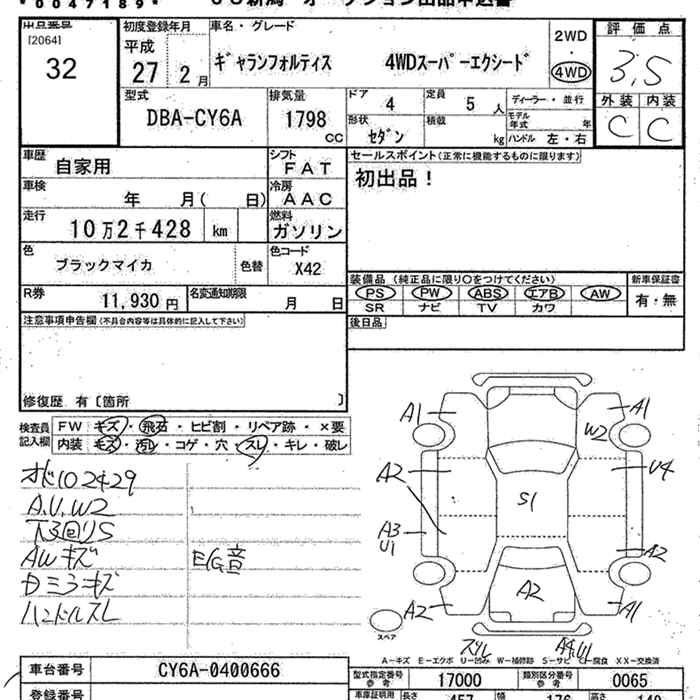 *0047189*
[2064]
32
初度登録年月
平成
27 2月
車名・グレード
ギャランフォルティス 4WDスーパーエクシード
2WD
・
4WD
評価点
3,5
外装 内装
C C
型式
DBA-CY6A
排気量
1798
CC
ドア
4
定員
5人
ディーラー・並行
形状
セダン
積載
kg
モデル年式
年
ハンドル 左・右
車歴
自家用
シフト
FAT
セールスポイント(正常に機能するものに限ります)
初出品!
車検
年 月( 日)
冷房
AAC
走行
10万2千428 km
燃料
ガソリン
色
ブラックマイカ
色替
色コード
X42
装備品(純正品に限り○をつけてください)
新車保証書
PS PW ABS エアB AW
SR ナビ TV カワ
有・無
R券
11,930円
名変通知期限
月 日
後日品
注意事項申告欄(不具合内容等は具体的に記入して下さい)
修復歴 有〔箇所 〕
検査員記入欄
FW キズ・飛石・ヒビ割・リペア跡・×要
内装 キズ・汚レ・コゲ・穴・スレ・キレ・破レ
オド102429
A.U.W2
下3回りS
AWキズ
E/G音
Dミラキズ
ハンドルスレ
A1 A1
W2
A2 U4
S1
A3
U1
A2
A2
A2 A1
スペア
スリレ
A4,U1
A-キズ E-エクボ U-凹み W-補修跡 S-サビ C-腐食 XX-交換済
車台番号
CY6A-0400666
型式指定番号
参考
17000
類別区分番号
参考
0065
登録番号
車庫証明用
長さ 457 幅 176 高さ 149